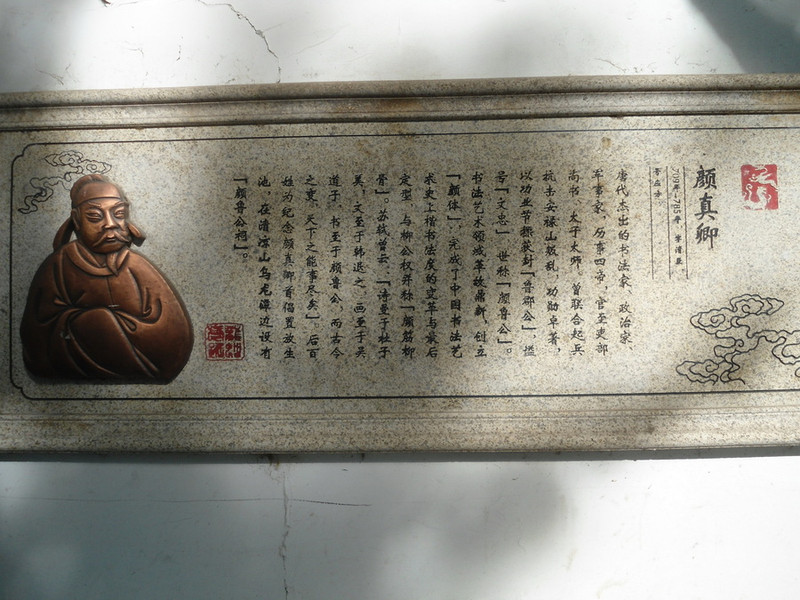 颜真卿
709年-785年 字清臣
唐代杰出的书法家、政治家、
军事家，历事四帝，官至吏部
尚书、太子太师，曾联合起兵
抗击安禄山叛乱，功勋卓著，
以功业节操获封「鲁郡公」，谥
号「文忠」，世称「颜鲁公」。
书法艺术领域革故鼎新，创立
「颜体」，完成了中国书法艺
术史上楷书法度的变革与最后
定型，与柳公权并称「颜筋柳
骨」。苏轼曾云：「诗至于杜子
美，文至于韩退之，画至于吴
道子，书至于颜鲁公，而古今
之变，天下之能事尽矣」。后百
姓为纪念颜真卿首倡置放生
池，在清凉山乌龙潭边设有
「颜鲁公祠」。